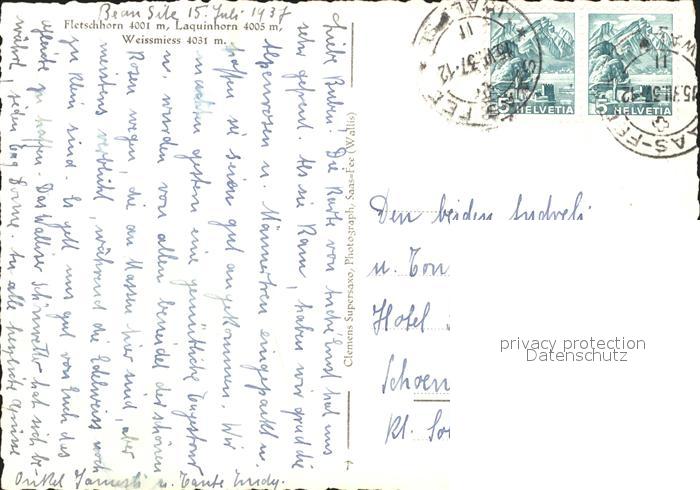 Beau Site 15. Juli 1937
Fletschhorn 4001 m, Laquinhorn 4005 m,
Weissmiess 4031 m.
Liebe Buben! Die Karte von Euch hat uns
sehr gefreut. Als sie kam, haben wir grad die
Alpenrosen u. Männertreu eingepackt u.
hoffen sie seien gut angekommen. Wir
machten gestern eine gemütliche Tagestour
u. wurden von allen beneidet der schönen
Rosen wegen, die an Massen hier sind, aber
meistens verblüht, während die Edelweiss noch
zu klein sind. Es geht uns gut von Euch das
gleiche zu hoffen. Das Walliser Schönwetter hat sich be-
währt, jeden Tag Sonne. An alle herzliche Grüsse
Onkel u. Tante
Clemens Supersaxo, Photograph, Saas-Fee (Wallis)
5 HELVETIA
5 HELVETIA
SAAS-FEE
Den beiden
u.
Hotel
Schoen
Kl.
privacy protection
Datenschutz